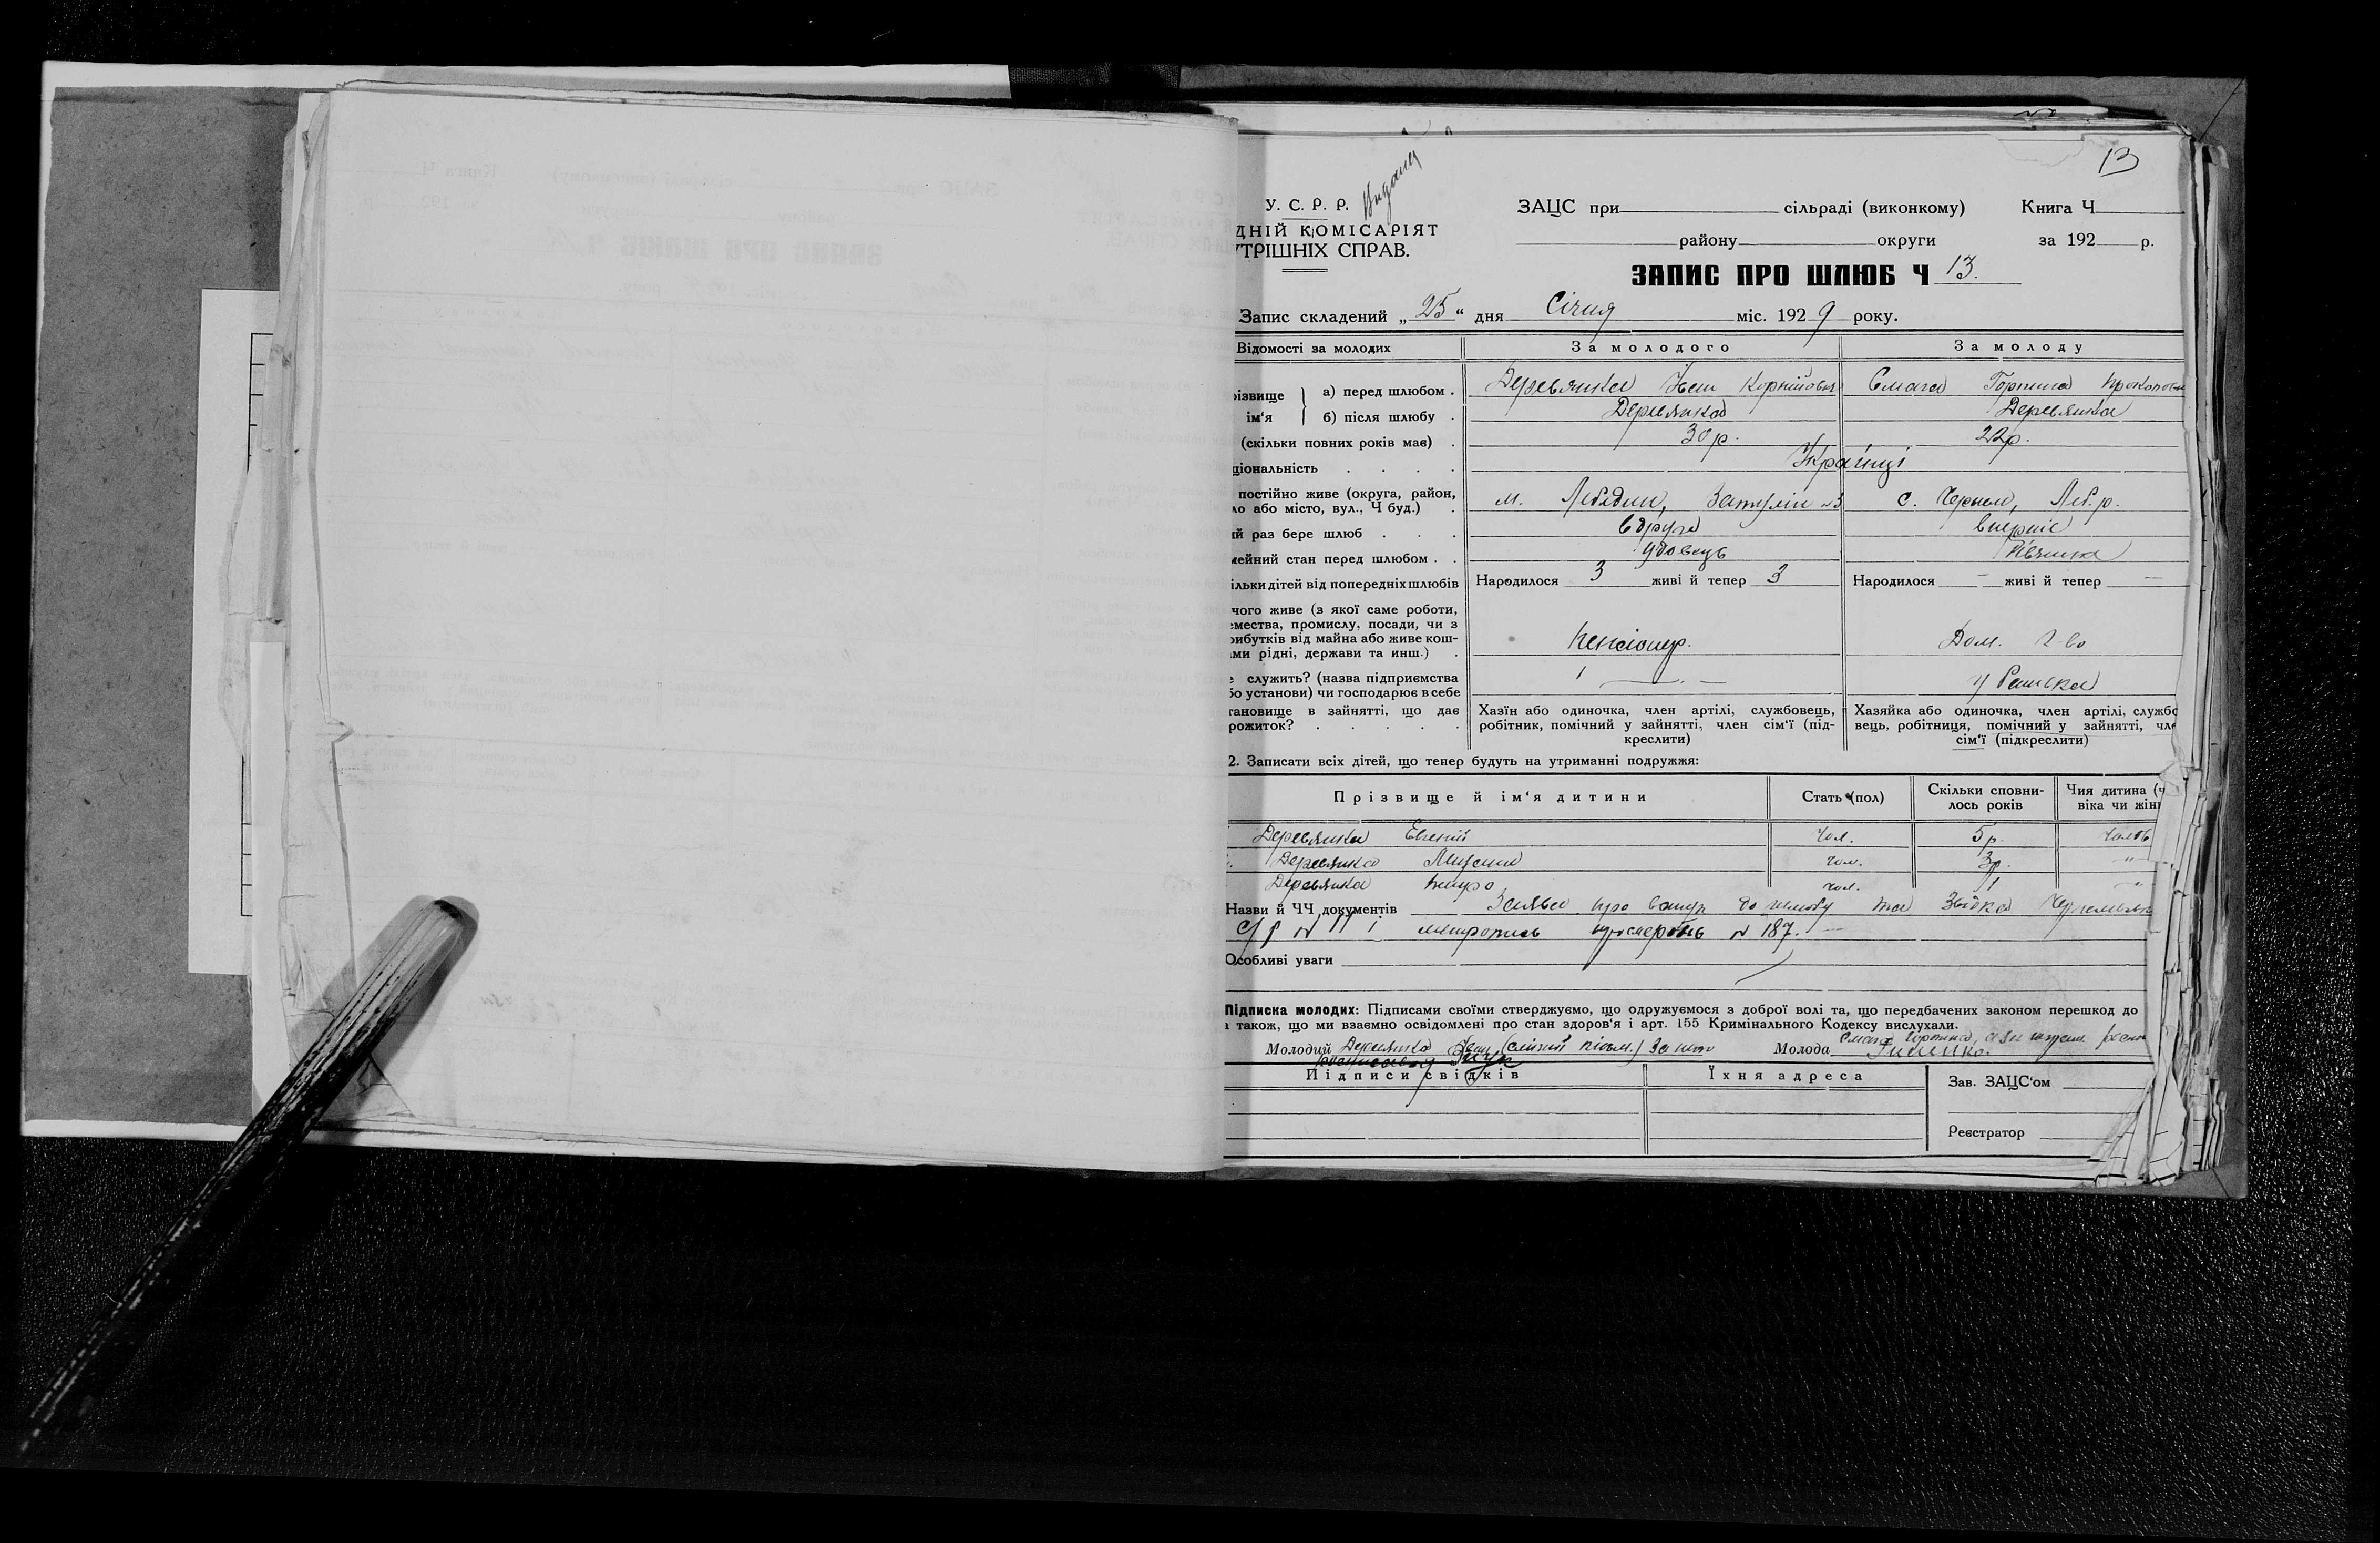 13
У. С. Р. Р.
ЗАЦС при сільраді (виконкому) Книга Ч
ДНІЙ КОМІСАРІЯТ
району округи за 192 р.
ТРІШНІХ СПРАВ.
ЗАПИС ПРО ШЛЮБ Ч 13.
Запис складений „25“ дня Січня міс. 1929 року.
Відомості за молодих За молодого За молоду
різвище ім‘я } а) перед шлюбом . Деревянка Іван Корнійович Смага Горпина Прокопов
б) після шлюбу . Деревянка Деревянка
(скільки повних років має) . 30 р. 22 р.
ціональність . . . . Українці
постійно живе (округа, район, м. Лебедин, с. Черném, Леб. р.
ло або місто, вул., Ч буд.) .
ий раз бере шлюб . . . вдруге вперше
мейний стан перед шлюбом . . удовець дівчина
ільки дітей від попередніх шлюбів Народилося 3 живі й тепер 3 Народилося — живі й тепер —
чого живе (з якої саме роботи,
емества, промислу, посади, чи з
рибутків від майна або живе кош-
ами рідні, держави та инш.) . Пенсіонер. Дом. г-во
служить? (назва підприємства
бо установи) чи господарює в себе у батька
тановище в зайнятті, що дає
рожиток? . . . . .
Хазїн або одиночка, член артілі, службовець,
робітник, помічний у зайнятті, член сім‘ї (під-
креслити)
Хазяйка або одиночка, член артілі, службо
вець, робітниця, помічний у зайнятті, чле
сім‘ї (підкреслити)
2. Записати всіх дітей, що тепер будуть на утриманні подружжя:
Прізвище й ім‘я дитини Стать (пол) Скільки сповни-
лось років Чия дитина (ч
віка чи жін
Деревянка Евгеній чол. 5 р. чолов
Деревянка чол. 3 р. "
Деревянка Петро чол. 1 "
Назви й ЧЧ документів Заява про вступ до шлюбу та Звідка
с/р № 11 і метропись про смерть № 187.
Особливі уваги
Підписка молодих: Підписами своїми стверджуємо, що одружуємося з доброї волі та, що передбачених законом перешкод до
а також, що ми взаємно освідомлені про стан здоров‘я і арт. 155 Кримінального Кодексу вислухали.
Молодий Деревянко Іван (сліпий) за його Молода Смага Горпина, а за
Підписи свідків Їхня адреса Зав. ЗАЦС‘ом
Реєстратор